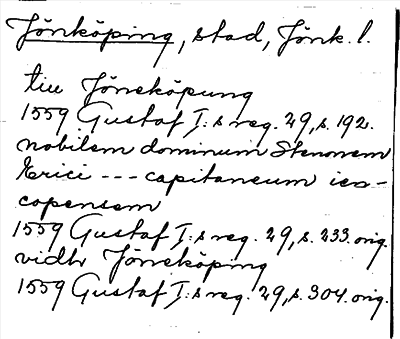 Jönköping, stad, Jönk. l.
till Jöneköpung
1559 Gustaf I:s reg. 29, s. 192.
nobilem dominum Stenonem
Erici --- capitaneum ies-
copensem
1559 Gustaf I:s reg. 29, s. 233. orig.
vidh Jöneköping
1559 Gustaf I:s reg. 29, s. 304. orig.